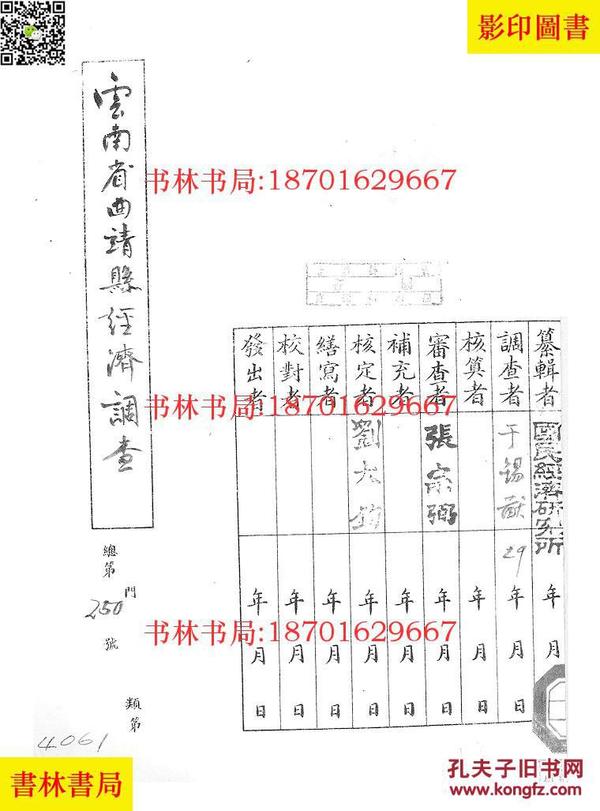 影印圖書
雲南省曲靖縣經濟調查
書林书局:18701629667
纂輯者 國民經濟研究所 年 月 日
調查者 于錫猷 29 年 月 日
核算者 年 月 日
審查者 張宗弼 年 月 日
補充者 年 月 日
核定者 劉大鈞 年 月 日
繕寫者 年 月 日
校對者 年 月 日
發出者 年 月 日
書林书局:18701629667
書林书局:18701629667
總第 250 號
門
類第
4061
書林書局
孔夫子旧书网
www.kongfz.com